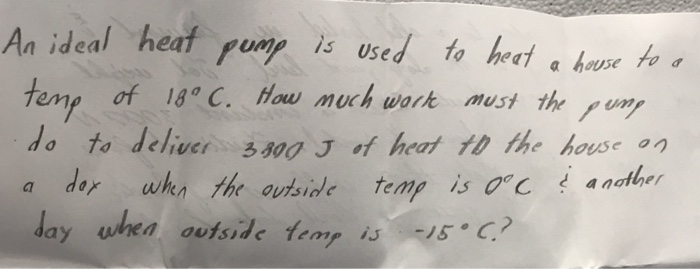 An ideal heat pump is used to heat a house to a
temp of 18°C. How much work must the pump
do to deliver 3800 J of heat to the house on
a day when the outside temp is 0°C & another
day when outside temp is -15°C?